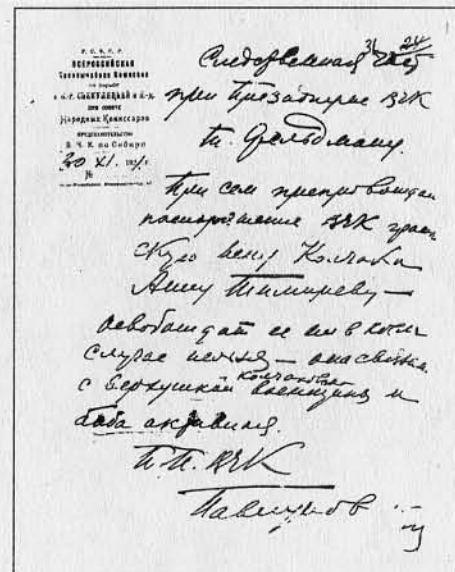 Р. С. Ф. С. Р.
ВСЕРОССИЙСКАЯ
Чрезвычайная Комиссия
по борьбе
с к.-р. СПЕКУЛЯЦИЕЙ и п. д.
при совете
Народных Комиссаров
ПРЕДСТАВИТЕЛЬСТВО
В. Ч. К. по Сибири
30 XI.
№
24
Следственная
при Президиуме ВЧК
т. Фельдману.
При сем препровождаю
распоряжение ВЧК
скую жену Колчака
Анну Тимиреву —
освобождат ее ни в коем
случае нельзя — она связана
с верхушкой колчаковс военщины и
баба активная.
П.П. ВЧК
Павлуновский